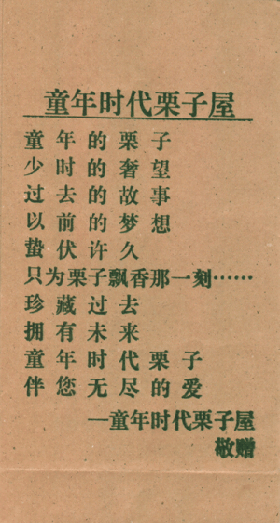 童年时代栗子屋
童年的栗子
少时的奢望
过去的故事
以前的梦想
蛰伏许久
只为栗子飘香那一刻……
珍藏过去
拥有未来
童年时代栗子
伴您无尽的爱
—童年时代栗子屋
敬赠